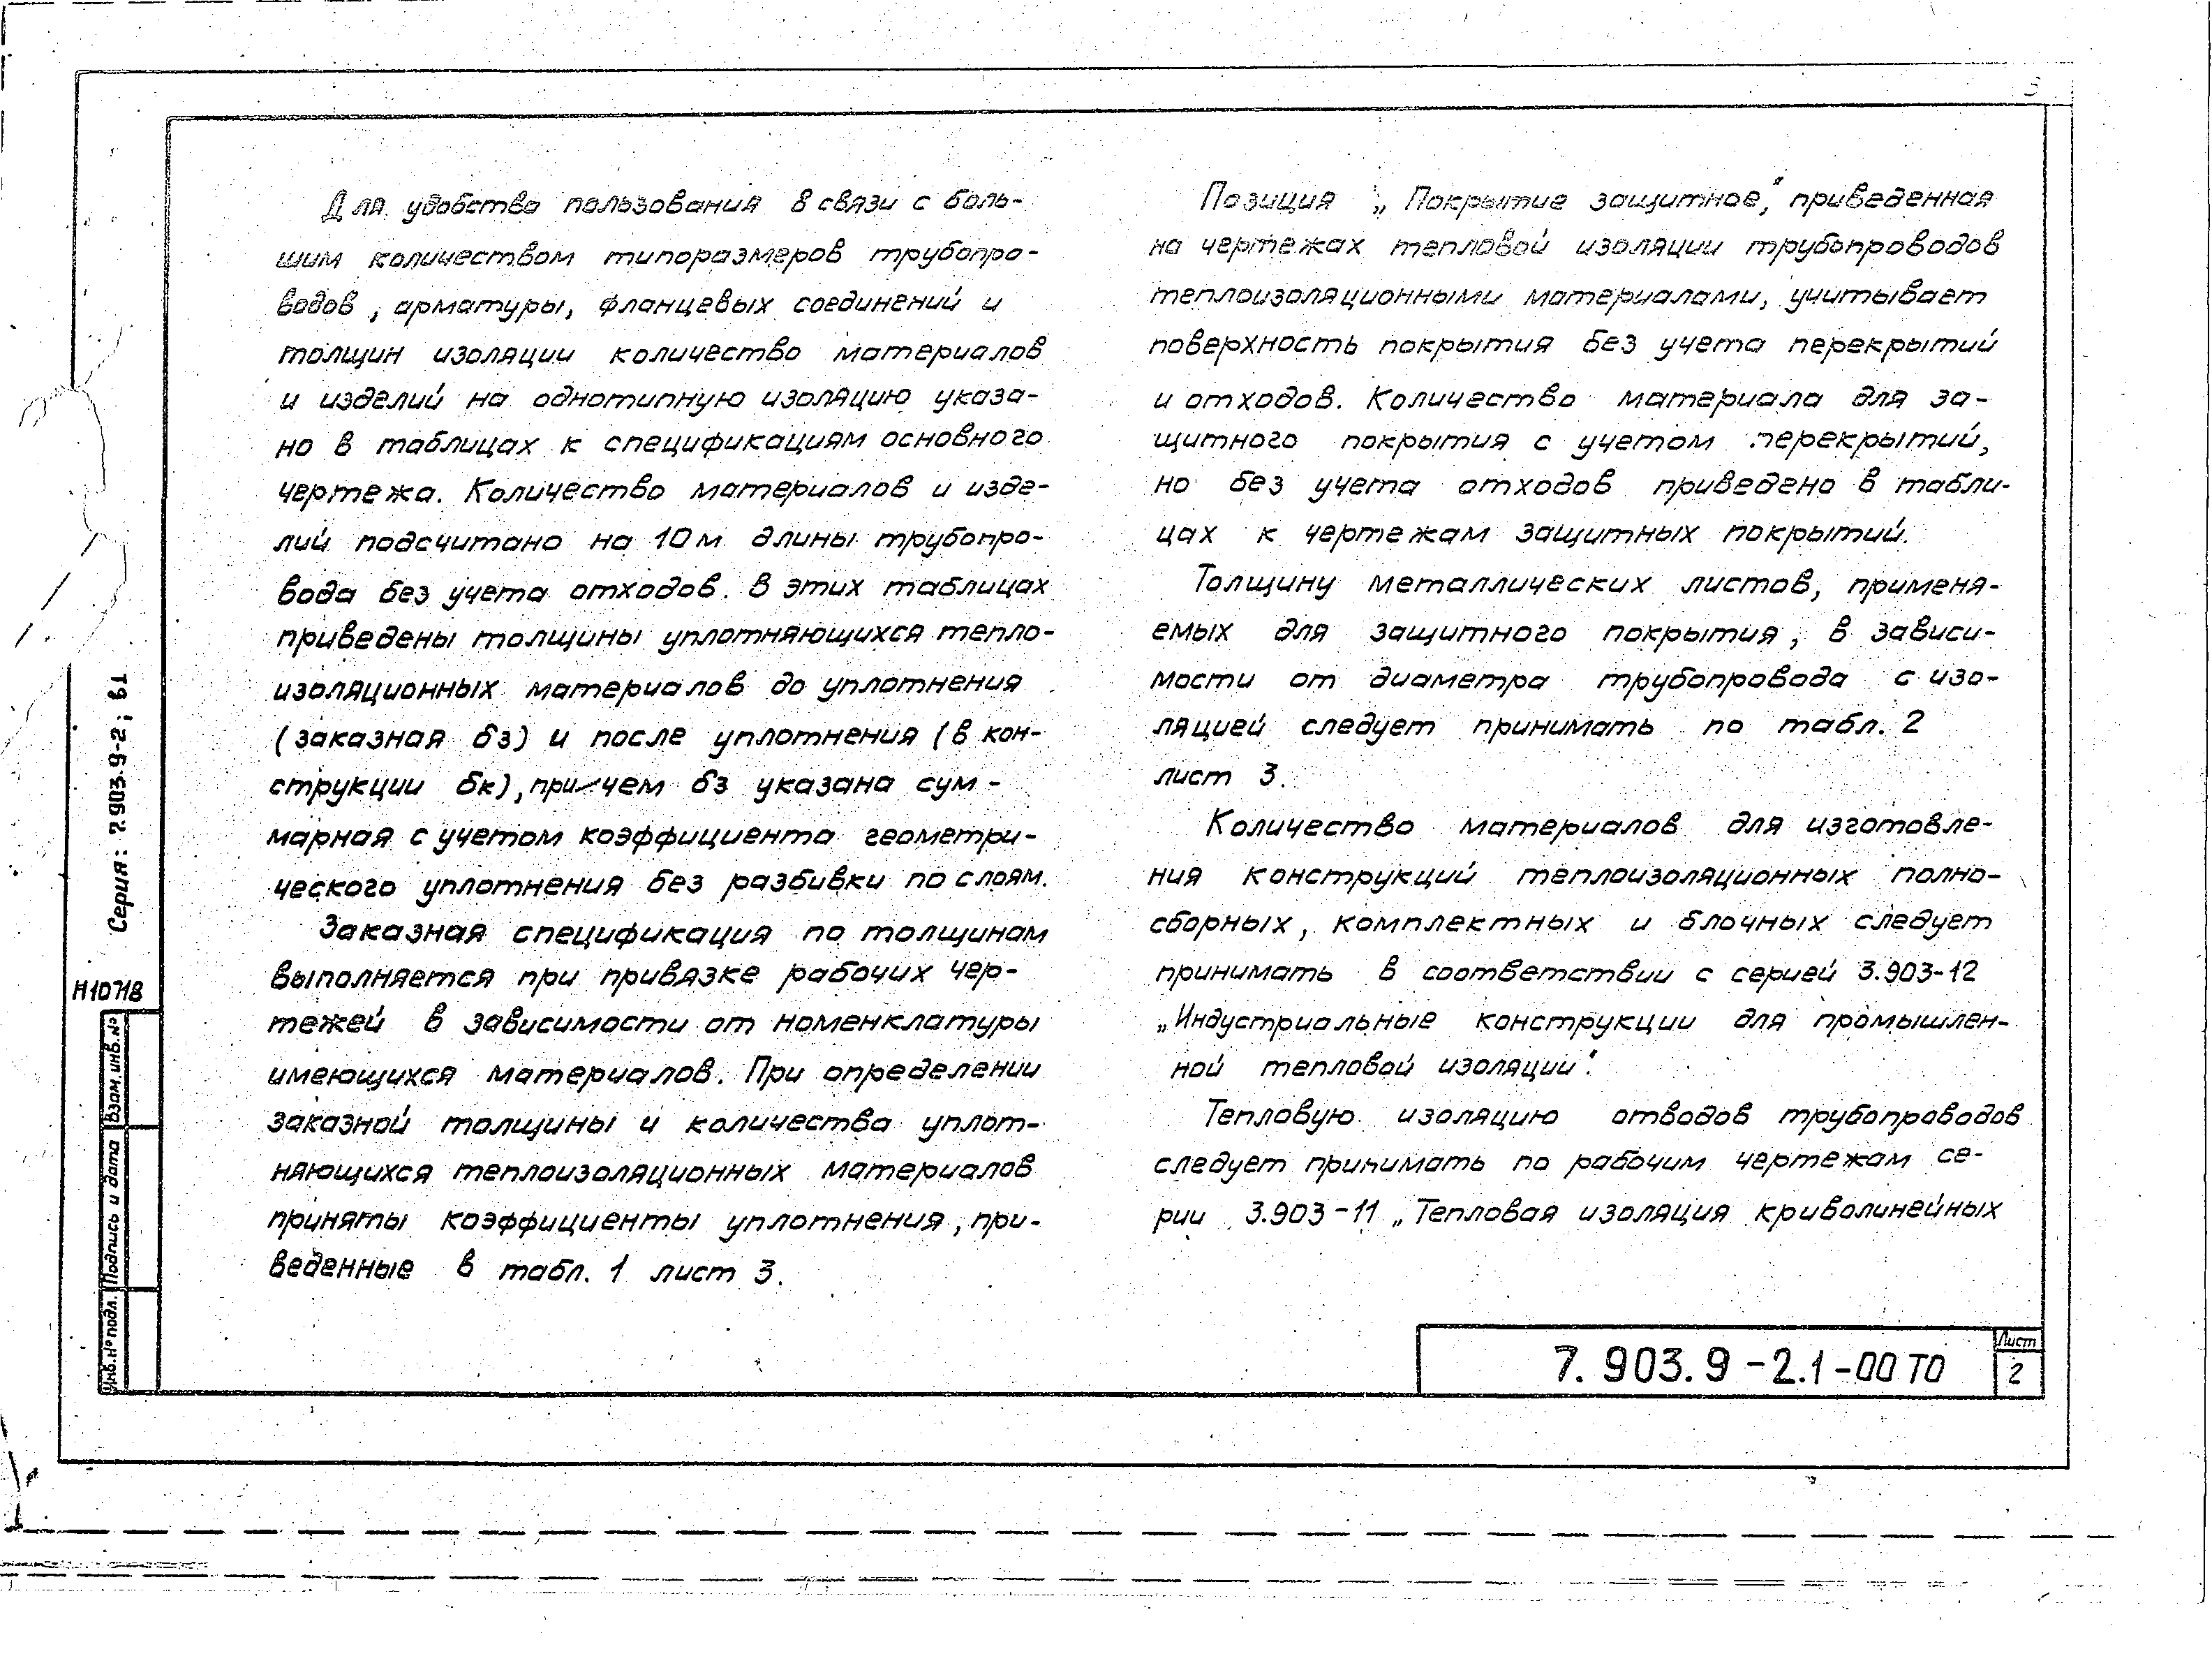 3
Для удобства пользования в связи с боль-
шим количеством типоразмеров трубопро-
водов, арматуры, фланцевых соединений и
толщин изоляции количество материалов
и изделий на однотипную изоляцию указа-
но в таблицах к спецификациям основного
чертежа. Количество материалов и изде-
лий подсчитано на 10 м длины трубопро-
вода без учета отходов. В этих таблицах
приведены толщины уплотняющихся тепло-
изоляционных материалов до уплотнения
(заказная бз) и после уплотнения (в кон-
струкции бк), причем бз указана сум-
марная с учетом коэффициента геометри-
ческого уплотнения без разбивки по слоям.
Заказная спецификация по толщинам
выполняется при привязке рабочих чер-
тежей в зависимости от номенклатуры
имеющихся материалов. При определении
заказной толщины и количества уплот-
няющихся теплоизоляционных материалов
приняты коэффициенты уплотнения, при-
веденные в табл. 1 лист 3.
Позиция „Покрытие защитное", приведенная
на чертежах тепловой изоляции трубопроводов
теплоизоляционными материалами, учитывает
поверхность покрытия без учета перекрытий
и отходов. Количество материала для за-
щитного покрытия с учетом перекрытий,
но без учета отходов приведено в табли-
цах к чертежам защитных покрытий.
Толщину металлических листов, применя-
емых для защитного покрытия, в зависи-
мости от диаметра трубопровода с изо-
ляцией следует принимать по табл. 2
лист 3.
Количество материалов для изготовле-
ния конструкций теплоизоляционных полно-
сборных, комплектных и блочных следует
принимать в соответствии с серией 3.903-12
„Индустриальные конструкции для промышлен-
ной тепловой изоляции".
Тепловую изоляцию отводов трубопроводов
следует принимать по рабочим чертежам се-
рии 3.903-11 „Тепловая изоляция криволинейных
Серия: 7.903.9-2; 61
Н10718
Взам.инв.№
Подпись и дата
Инв.№ подл.
7.903.9-2.1-00 ТО
Лист
2